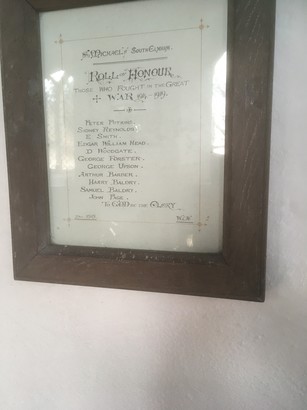 St. Michael's South Elmham.
Roll of Honour
Those who Fought in the Great
War 1914-1919.
Peter Potkins.
Sidney Reynolds.
E. Smith.
Edgar William Head.
D. Woodgate.
George Forsten.
George Urson.
Arthur Barber.
Harry Baldry.
Samuel Baldry.
John
To God be the Glory.